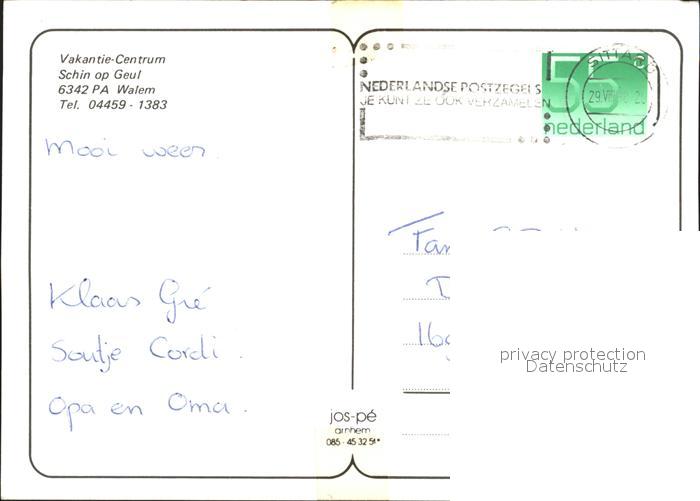 Vakantie-Centrum
Schin op Geul
6342 PA Walem
Tel. 04459 - 1383
NEDERLANDSE POSTZEGELS
JE KUNT ZE OOK VERZAMELEN
SITTARD
55
nederland
Mooi weer.
Klaas Gré
Soutje Cordi.
Opa en Oma.
Fam
privacy protection
Datenschutz
jos-pé
arnhem
085 - 45 32 51*